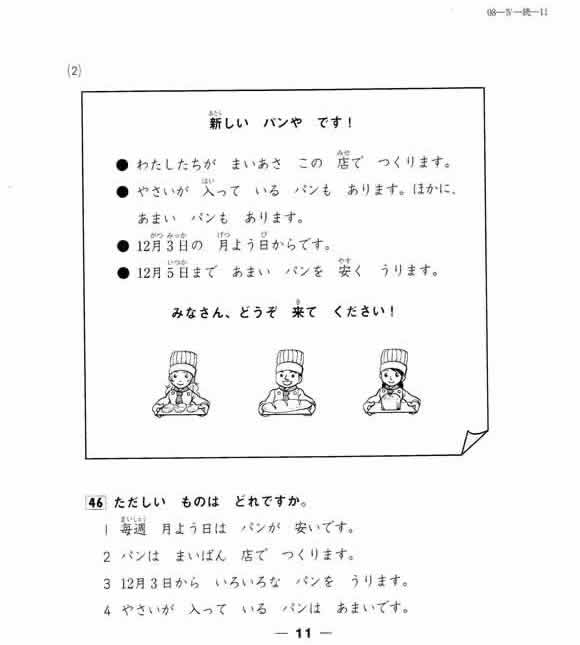 08－Ⅳ－読－11
(2)
新しい　パンや　です！
● わたしたちが　まいあさ　この　店で　つくります。
● やさいが　入って　いる　パンも　あります。ほかに、
あまい　パンも　あります。
● 12月3日の　月よう日からです。
● 12月5日まで　あまい　パンを　安く　うります。
みなさん、どうぞ　来て　ください！
46 ただしい　ものは　どれですか。
1 毎週　月よう日は　パンが　安いです。
2 パンは　まいばん　店で　つくります。
3 12月3日から　いろいろな　パンを　うります。
4 やさいが　入って　いる　パンは　あまいです。
— 11 —